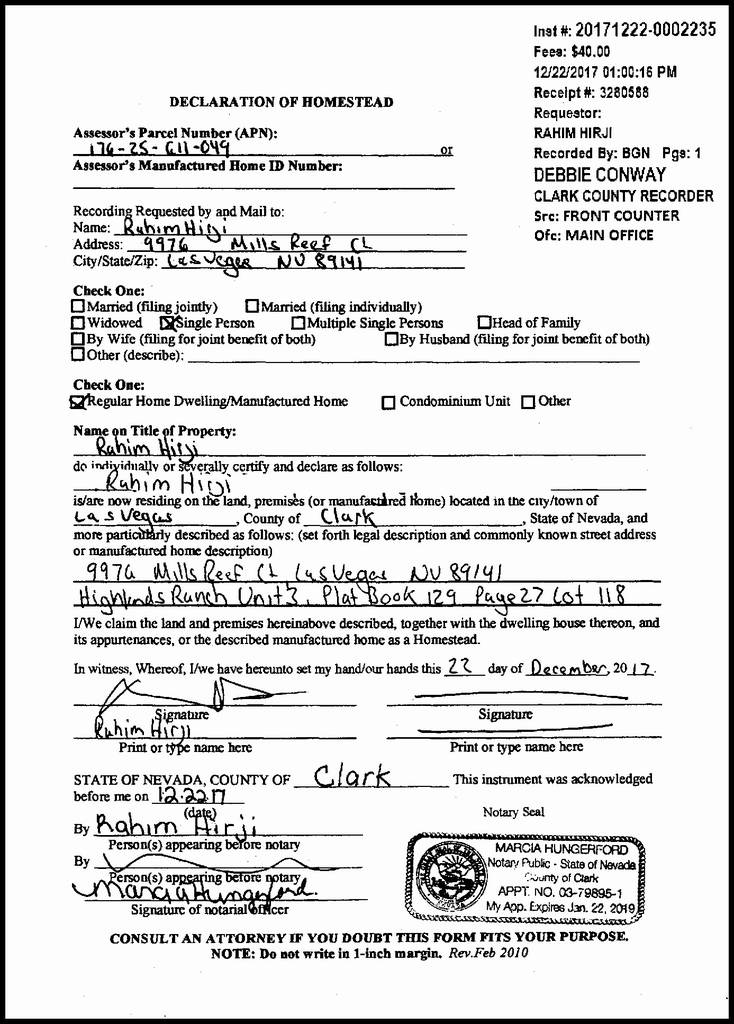 Inst #: 20171222-0002235
Fees: $40.00
12/22/2017 01:00:16 PM
Receipt #: 3280588
Requestor:
RAHIM HIRJI
Recorded By: BGN Pgs: 1
DEBBIE CONWAY
CLARK COUNTY RECORDER
Src: FRONT COUNTER
Ofc: MAIN OFFICE
DECLARATION OF HOMESTEAD
Assessor's Parcel Number (APN):
176-25-611-049 or
Assessor's Manufactured Home ID Number:
Recording Requested by and Mail to:
Name: Rahim Hirji
Address: 9976 Mills Reef Ct
City/State/Zip: Las Vegas NV 89141
Check One:
Married (filing jointly) Married (filing individually)
Widowed Single Person Multiple Single Persons Head of Family
By Wife (filing for joint benefit of both) By Husband (filing for joint benefit of both)
Other (describe):
Check One:
Regular Home Dwelling/Manufactured Home Condominium Unit Other
Name on Title of Property:
Rahim Hirji
do individually or severally certify and declare as follows:
Rahim Hirji
is/are now residing on the land, premises (or manufactured home) located in the city/town of
Las Vegas, County of Clark, State of Nevada, and
more particularly described as follows: (set forth legal description and commonly known street address
or manufactured home description)
9976 Mills Reef Ct Las Vegas NV 89141
Highlands Ranch Unit 3, Plat Book 129 Page 27 Lot 118
I/We claim the land and premises hereinabove described, together with the dwelling house thereon, and
its appurtenances, or the described manufactured home as a Homestead.
In witness, Whereof, I/we have hereunto set my hand/our hands this 22 day of December, 2017.
Signature Signature
Rahim Hirji
Print or type name here Print or type name here
STATE OF NEVADA, COUNTY OF Clark This instrument was acknowledged
before me on 12.22.17
(date)
Notary Seal
By Rahim Hirji
Person(s) appearing before notary
By
Person(s) appearing before notary
Marcia Hungerford.
Signature of notarial officer
MARCIA HUNGERFORD
Notary Public - State of Nevada
County of Clark
APPT. NO. 03-79895-1
My App. Expires Jan. 22, 2019
CONSULT AN ATTORNEY IF YOU DOUBT THIS FORM FITS YOUR PURPOSE.
NOTE: Do not write in 1-inch margin. Rev.Feb 2010